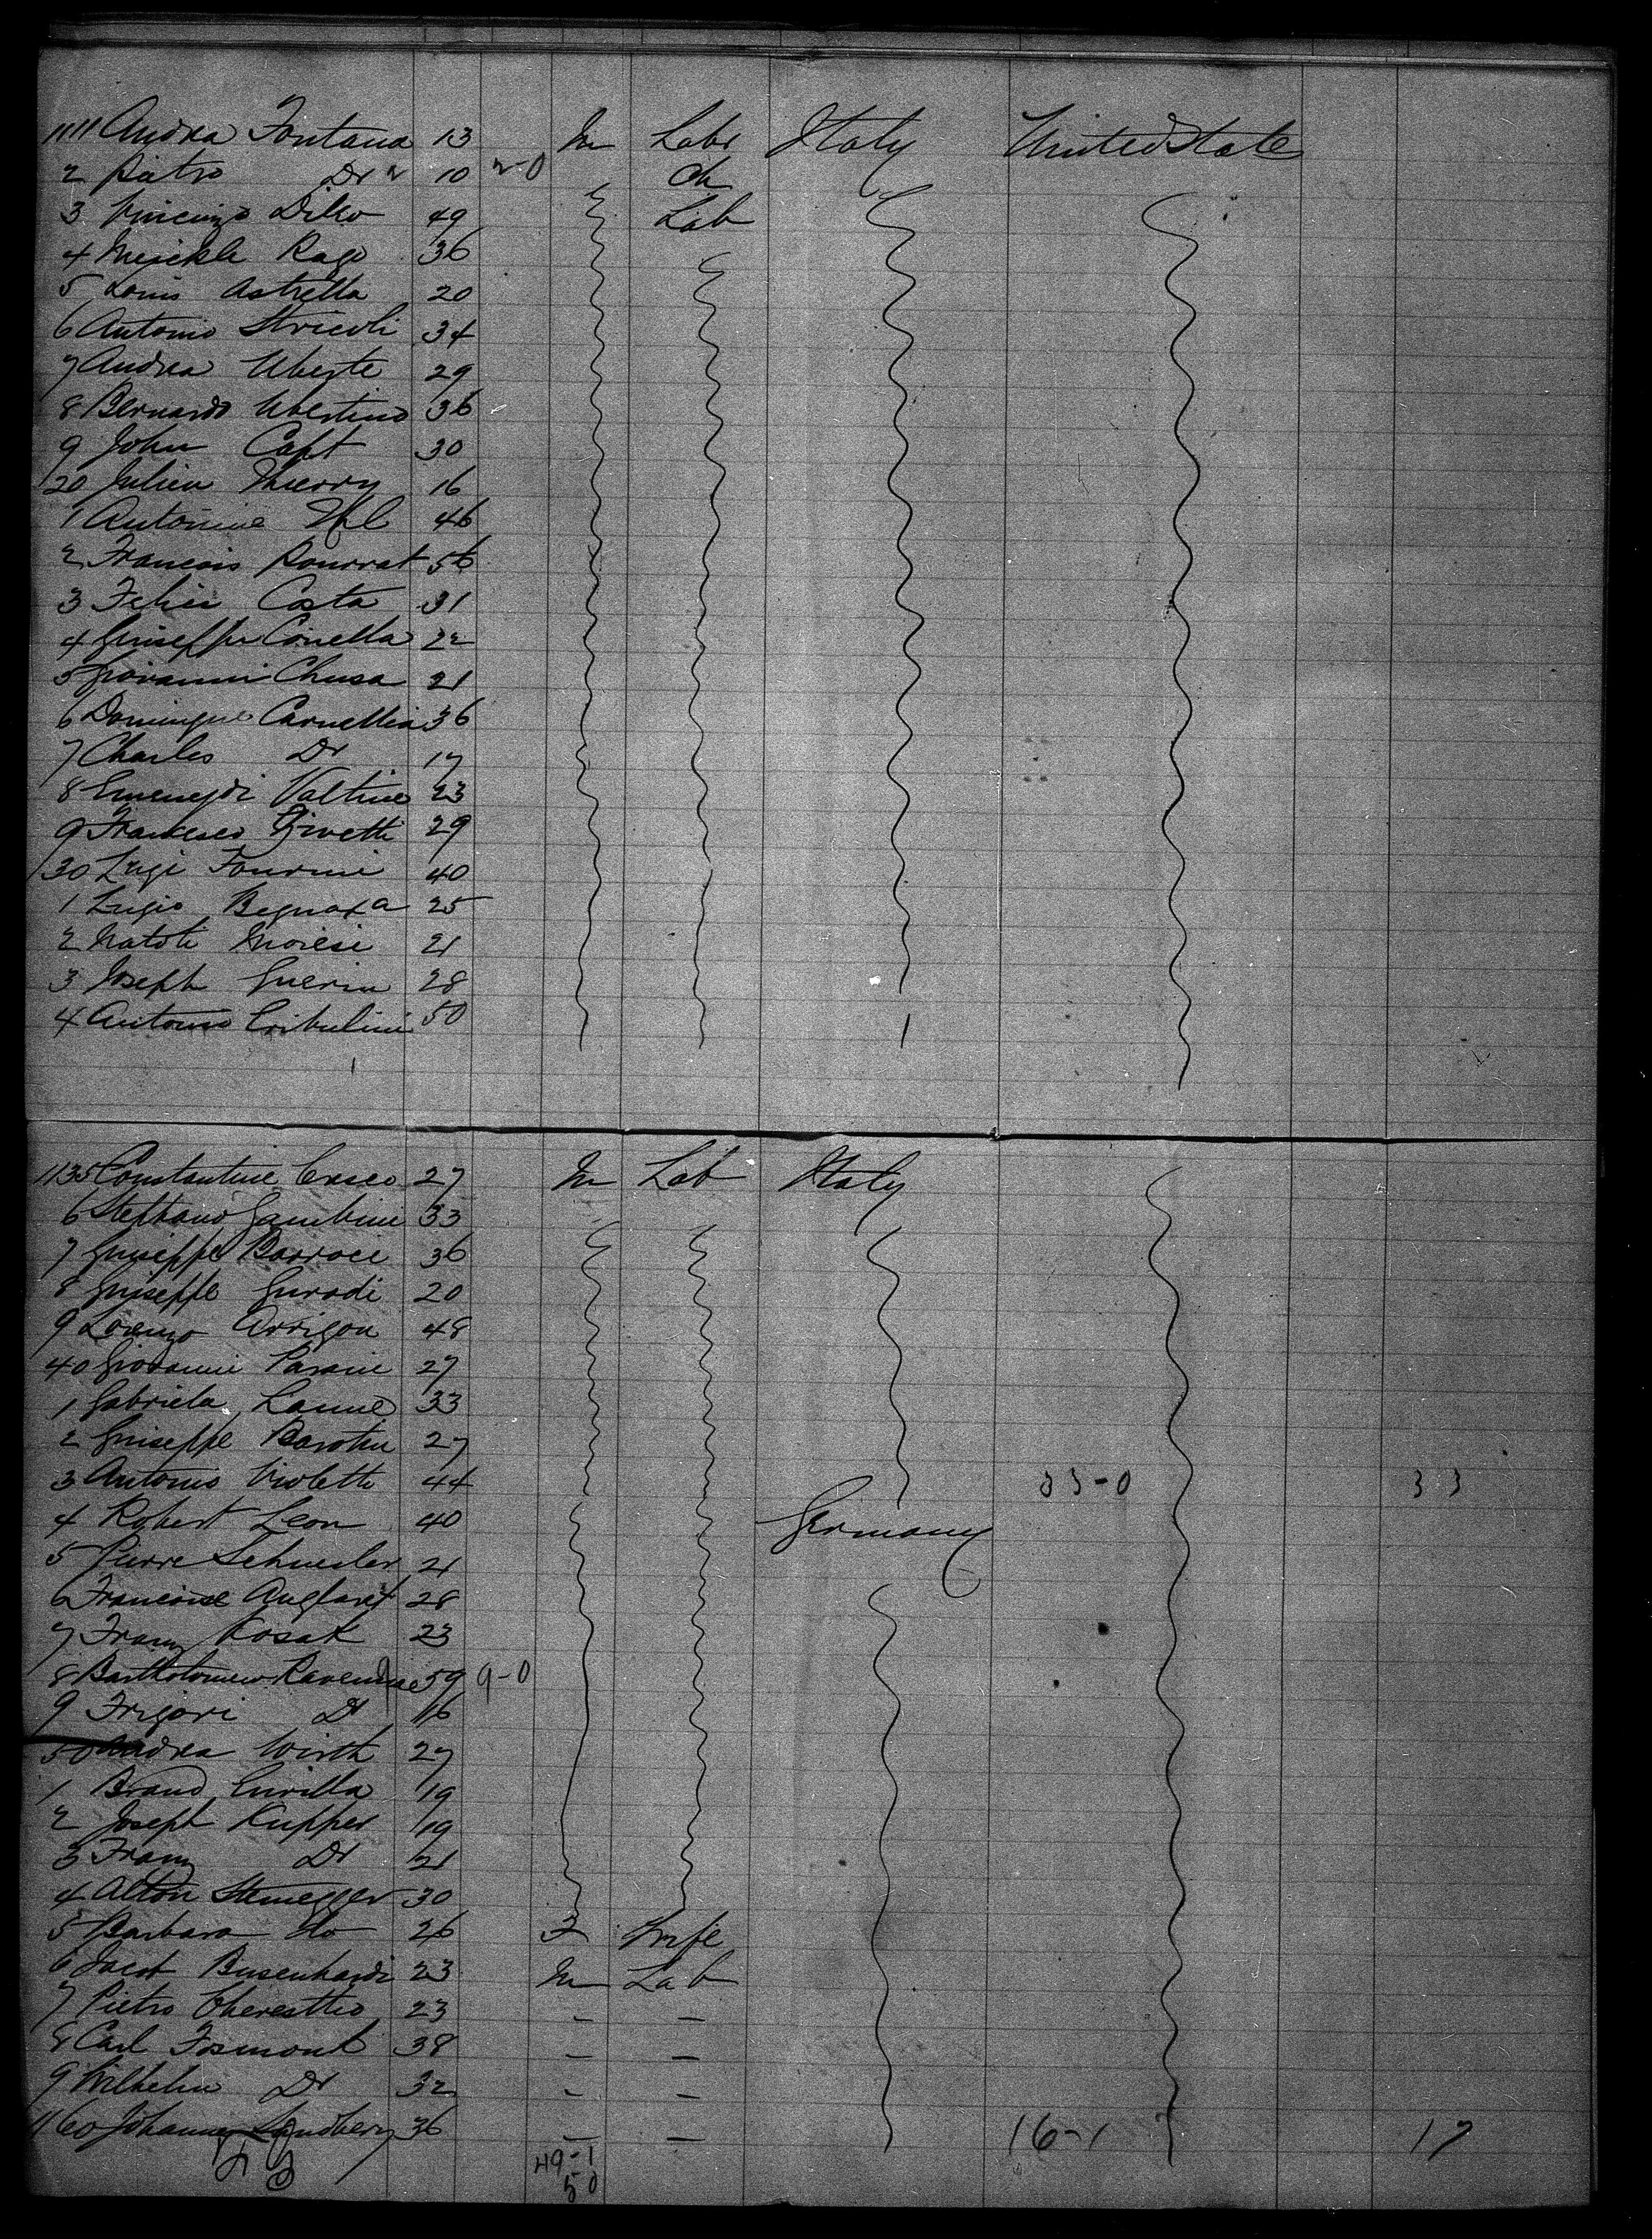 1111 Andrea Fontana 13 M Labr Italy United State
2 Pietro Do 10 2-0 Ch
3 Vincenzo Dilio 49 Lab
4 Rago 36
5 Louis Astrella 20
6 Antonio Stricoli 34
7 Andrea Uberte 29
8 Bernardo Ubertino 36
9 John Capt 30
20 Julien Thierry 16
1 Antoine 46
2 Francois Pourrat 56
3 Felice Costa 31
4 Giuseppe Conella 22
5 Giovanni Chusa 21
6 Domingue Carnellia 36
7 Charles Do 17
8 Valtine 23
9 Francesco 29
30 Luigi Fournie 40
1 Luigio 25
2 Natoli Moresi 21
3 Joseph Guerin 28
4 Antonio Cribulini 50
1135 Constantine Crseo 27 M Lab Italy
6 Stephano Gambini 33
7 Guiseppe Barroce 36
8 Guiseppe Gurodi 20
9 Lorenzo Arrigon 48
40 Giovanni Parain 27
1 Gabriela Lanne 33
2 Guiseppe 27
3 Antonio Violetti 44 33-0 33
4 Robert Leon 40 Germany
5 Pierre Schuesler 21
6 Francoise Anglaret 28
7 Franz Kosak 23
8 Bartholomew 59 9-0
9 Frigori Do 16
50 Andrea Wirth 27
1 Brand 19
2 Joseph Kupper 19
3 Franz Do 21
4 Alton Steinegger 30
5 Barbara do 26 F Wife
6 Jacob Busenhardi 23 M Lab
7 Pietro 23 – –
8 Carl Fremont 38 – –
9 Wilhelm Do 32 – –
1160 Johannes Sandberg 36 – – 16-1 17
49-1
50